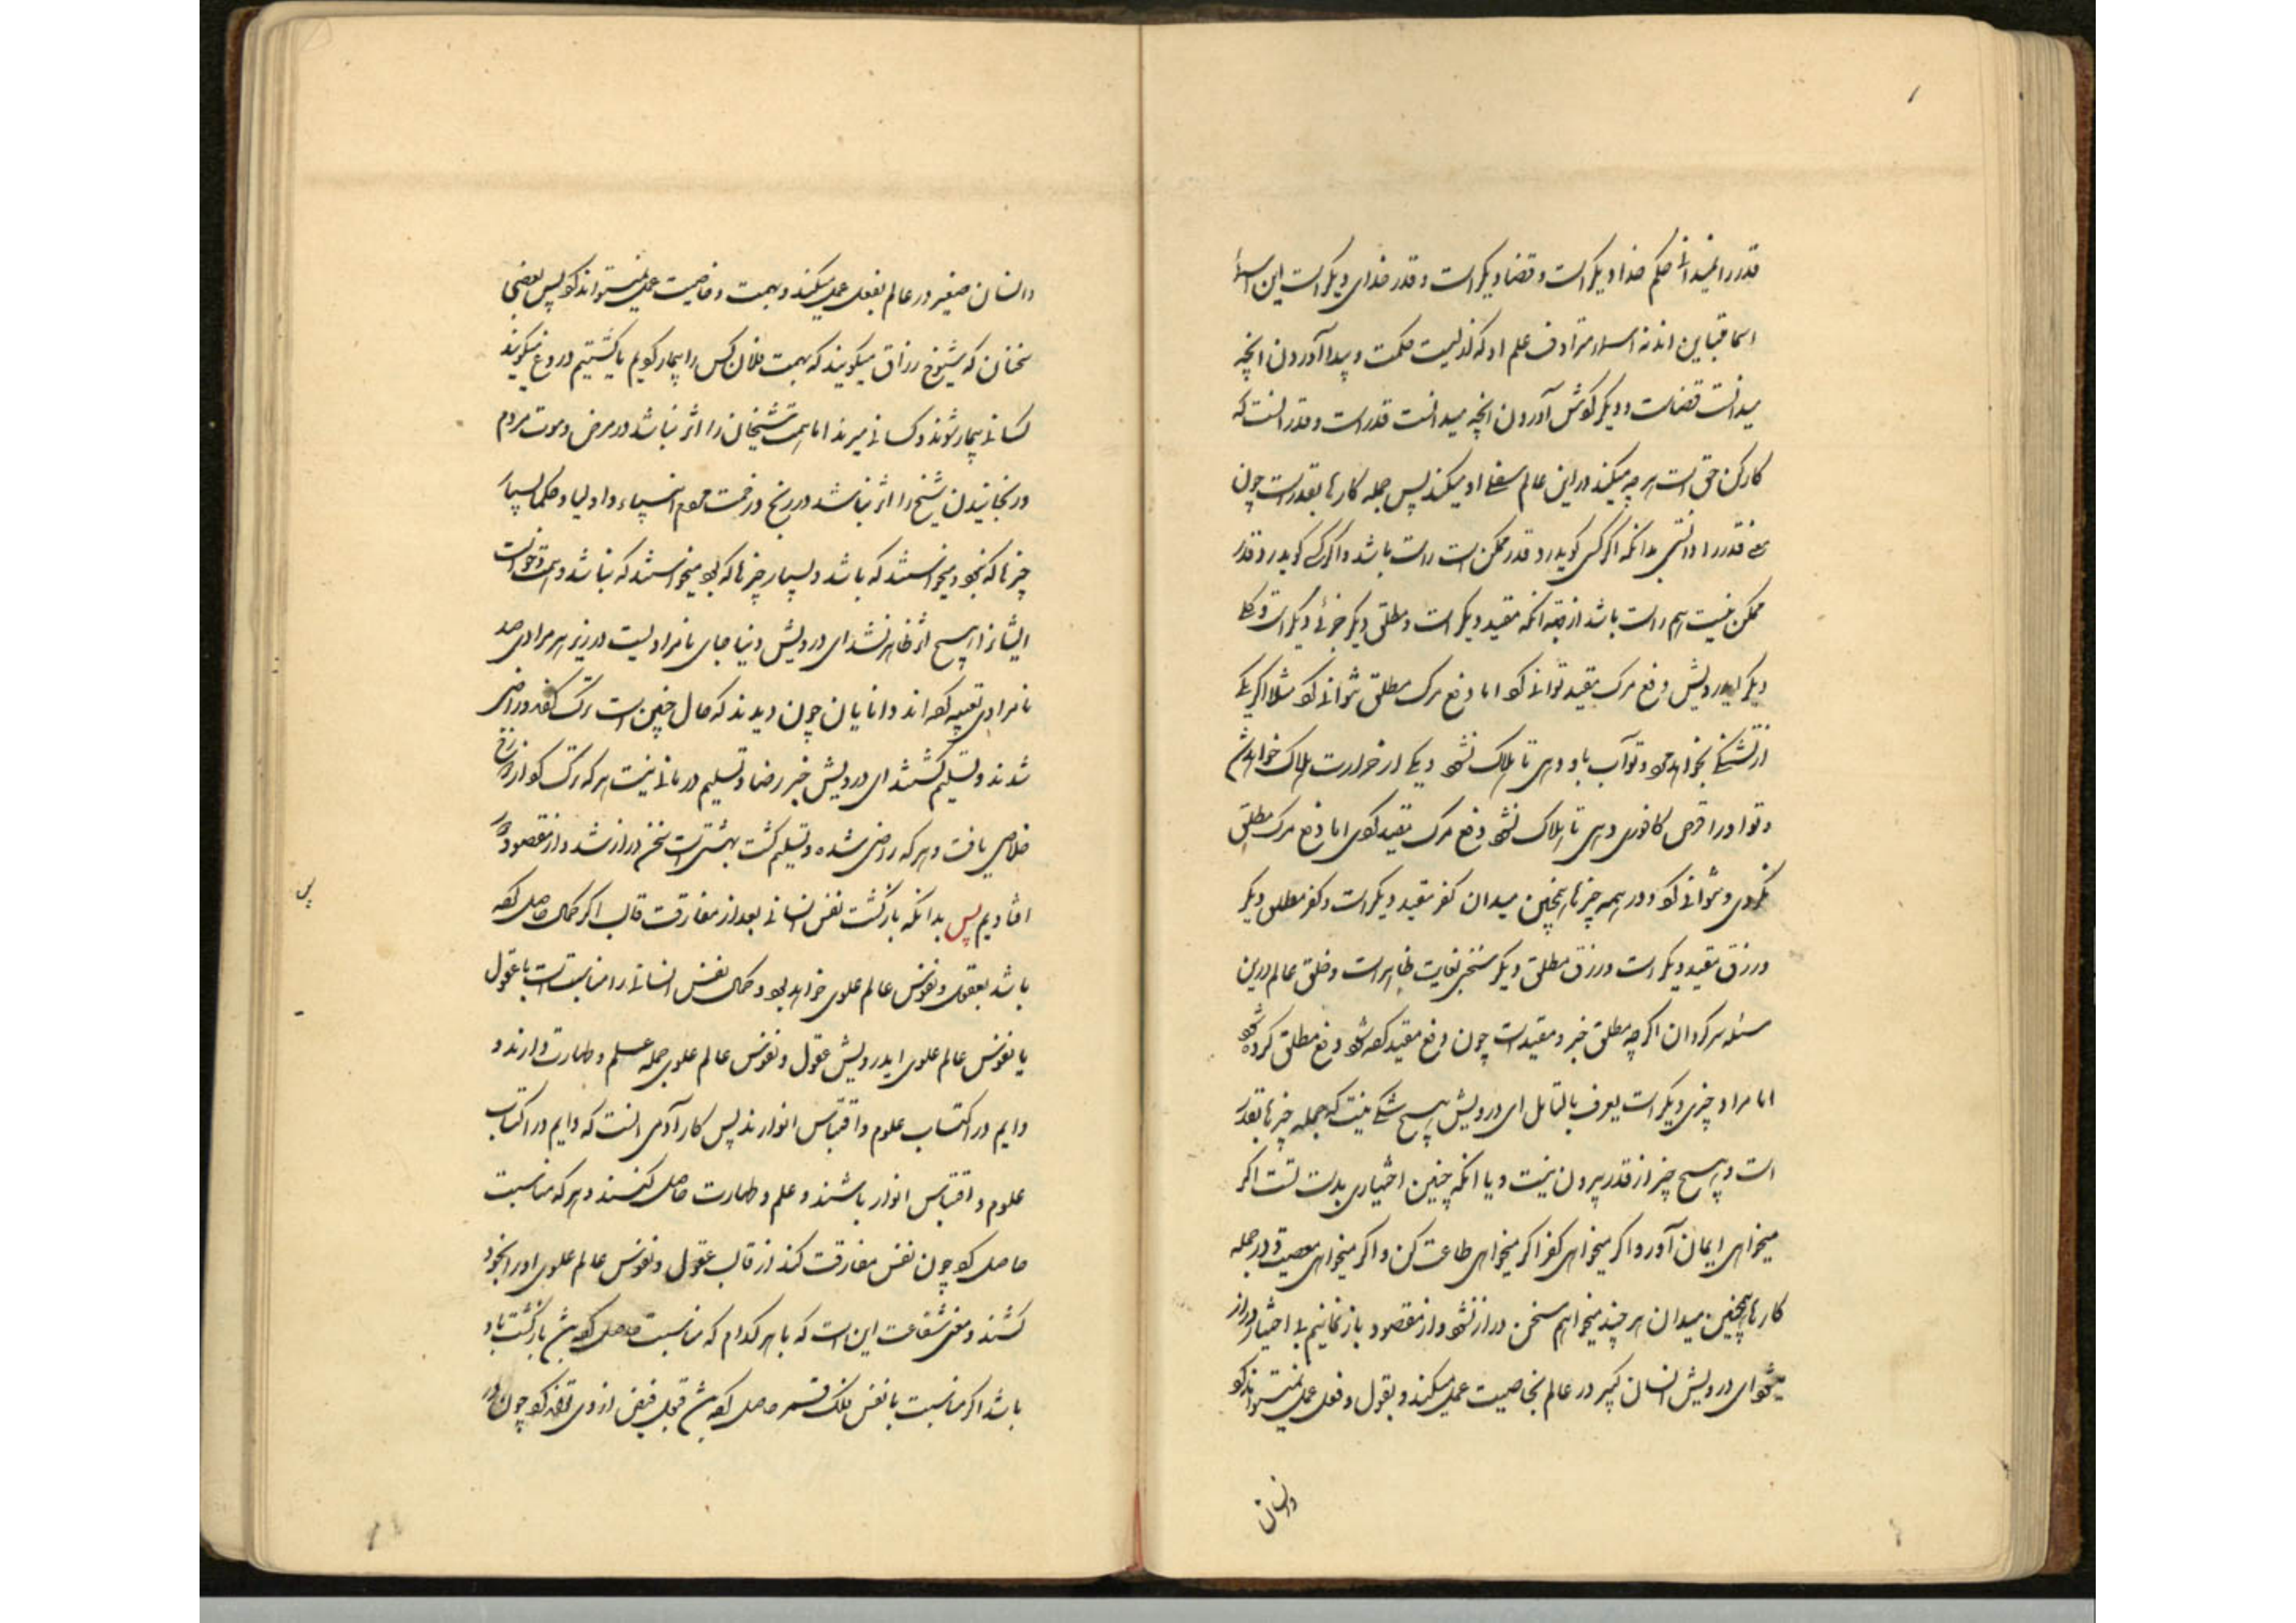 قدر را نمیدانی حکم خدا دیگر است و قضا دیگر است و قدر خدای دیگر است این اسماء
اسما متباین اند نه اسماء مترادف علم او که ازلیست حکمت و پیدا آوردن انچه
میدانست قضاست و دیگر کوشش آوردن انچه میدانست قدر است و قدر انست که
کارکن حق است هر چه میکند در این عالم سفلی او میکند پس جمله کارها بقدر است چون
معنی قدر را دانستی بدانکه اگر کسی گوید رد قدر ممکن است راست باشد و اگر کسی گوید رد قدر
ممکن نیست هم راست باشد از جهة انکه مقید دیگر است و مطلق دیگر جزئی دیگر است و کلی
دیگر ایدرویش دفع مرگ مقید توانی کرد اما دفع مرگ مطلق نتوانی کرد مثلا اگر یکی
از تشنگی بخواهد مرد و تو آب باو دهی تا هلاک نشود و یکی از حرارت هلاک خواهد شد
و تو او را قرص کافوری دهی تا هلاک نشود دفع مرگ مقید کردی اما دفع مرگ مطلق
نکردی و نتوانی کرد و در همه چیزها همچنین میدان کفر مقید دیگر است و کفر مطلق دیگر
و رزق مقید دیگر است و رزق مطلق دیگر سخنی بغایت ظاهر است و خلق عالم درین
مسئله سرگردان اگرچه مطلق جبر و مقید است چون دفع مقید کرده شود دفع مطلق کرده شود
اما مراد چیزی دیگر است یعرف بالتامل ای درویش هیچ شکی نیست که جمله چیزها بقدر
است و هیچ چیز از قدر بیرون نیست و با انکه چنین اختیاری بدست تست اگر
میخواهی ایمان آور و اگر میخواهی کفر اگر میخواهی طاعت کن و اگر میخواهی معصیت و در جمله
کارها همچنین میدان هر چند میخواهم سخن دراز نشود و از مقصود باز نمانیم بی اختیار دراز
میشود ای درویش انسان کبیر در عالم بخاصیت عمل میکند و بقول و فعل عمل نمیتواند کرد
و انسان
و انسان صغیر در عالم بفعل عمل میکند و بهمت و خاصیت عمل نمیتواند کرد پس بعضی
سخنان که شیوخ رزاق میگویند که بهمت فلان کس را بیمار کردیم یا کشتیم دروغ میگویند
کسانی بیمار شوند و کسانی میرند اما همت شیخان را اثر نباشد در مرض و موت مردم
و رنجانیدن شیخ را اثر نباشد در رنج و زحمت مردم انبیاء و اولیا و حکما بسیار
چیزها که نبود میخواستند که باشد و بسیار چیزها که بود میخواستند که نباشد و همت و خواست
ایشانرا هیچ اثر ظاهر نشد ای درویش دنیا جای نامرادیست در زیر هر مرادی صد
نامرادی تعبیه کرده اند دانایان چون دیدند که حال چنین است ترک کردند و راضی
شدند و تسلیم گشتند ای درویش جز رضا و تسلیم درمانی نیست هر که ترک کرد از دوزخ
خلاصی یافت و هر که راضی شده و تسلیم گشت بهشتی است سخن دراز شد و از مقصود دور
افتادیم پس بدانکه بازگشت نفس انسانی بعد از مفارقت قالب اگر کمال حاصل کرده
باشد بعقول و نفوس عالم علوی خواهد بود و کمال نفس انسانی را مناسبت است با عقول
یا نفوس عالم علوی ایدرویش عقول و نفوس عالم علوی جمله علم و طهارت دارند و
دایم در اکتساب علوم و اقتباس انوارند پس کار آدمی انست که دایم در اکتساب
علوم و اقتباس انوار باشند و علم و طهارت حاصل کنند و هر که مناسبت
حاصل کرد چون نفس مفارقت کند از قالب عقول و نفوس عالم علوی او را بخود
کشند و معنی شفاعت این است که با هر کدام که مناسبت حاصل کرده باشد بازگشت باو
باشد اگر مناسبت با نفس فلک قمر حاصل کرده باشد قبول فیض از وی تواند کرد چون در